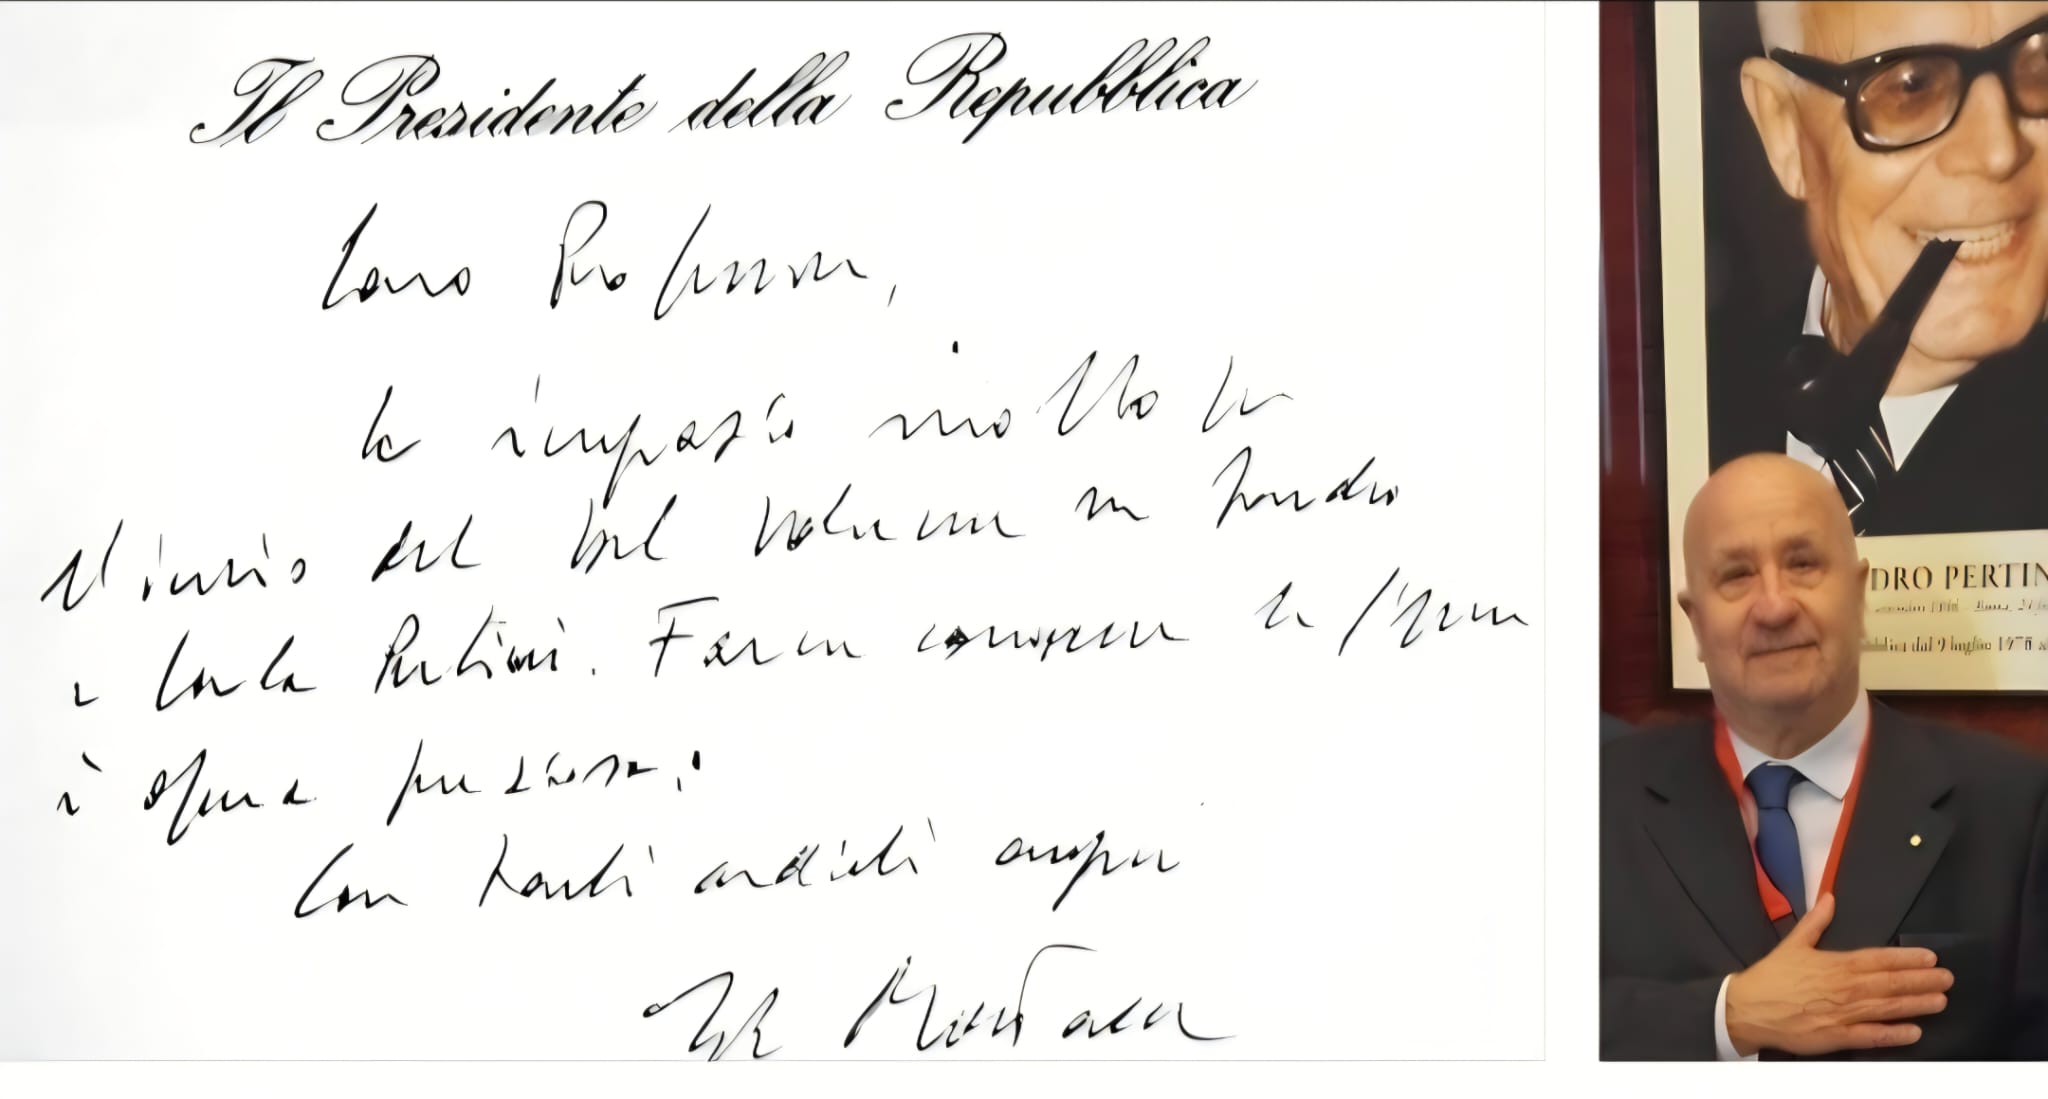 Il Presidente della Repubblica
Caro Professore,
la ringrazio molto per
l'invio del bel volume su Sandro
e Carla Pertini. Farne conoscere le figure
è opera preziosa.
Con tanti cordiali auguri
Mattarella
DRO PERTIN